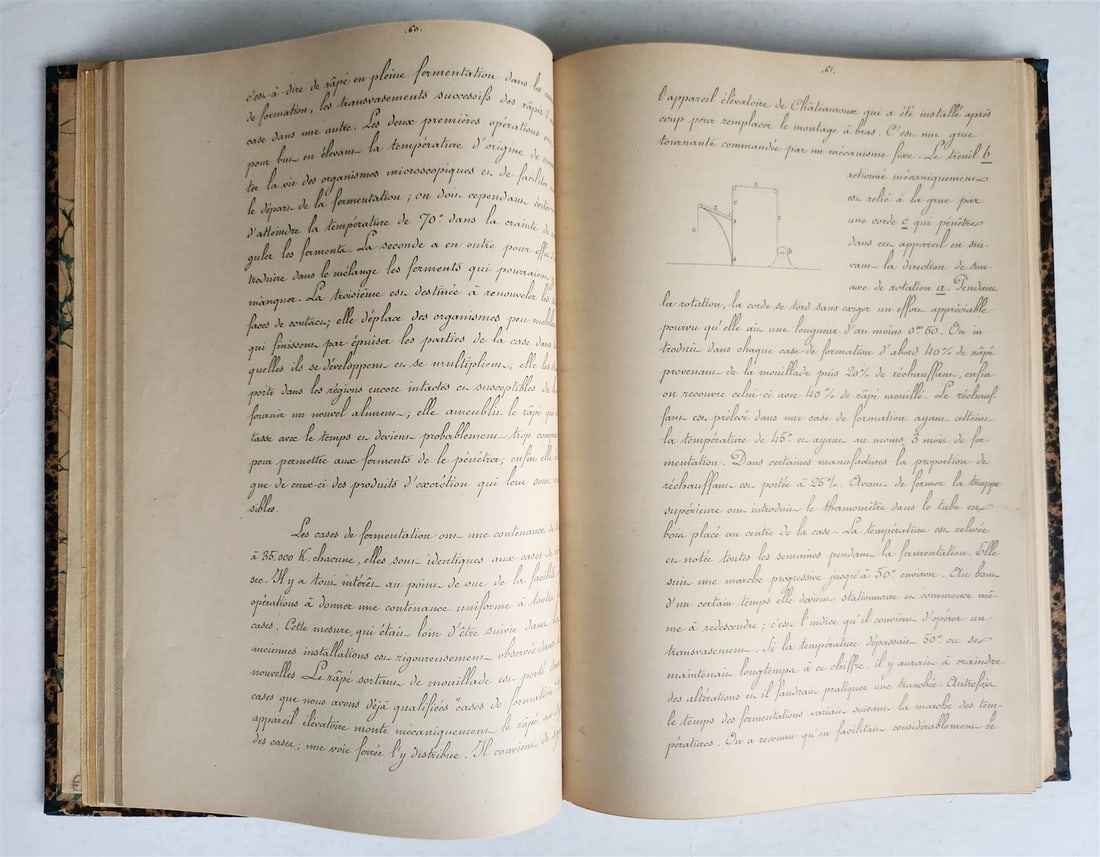 60.
c'est à dire de râpé en pleine fermentation dans les
de formation, les transvasements successifs des râpés d'une
case dans une autre. Les deux premières opérations ont
pour but en élevant la température d'origine de
ter la vie des organismes microscopiques et de faciliter
le départ de la fermentation; on doit cependant éviter
d'atteindre la température de 70° dans la crainte de
guler les ferments. La seconde a en outre pour effet
troduire dans le mélange les ferments qui pourraient
manquer. La troisième est destinée à renouveler les
faces de contact; elle déplace des organismes peu mobiles
qui finissent par épuiser les parties de la case dans
quelles ils se développent et se multiplient; elle les
porte dans les régions encore intactes et susceptibles de
fournir un nouvel aliment; elle ameublit le râpé qui
tasse avec le temps et devient probablement trop
pour permettre aux ferments de le pénétrer; enfin elle
que de ceux-ci des produits d'excrétion qui leur sont
sibles.
Les cases de fermentation ont une contenance de
à 35.000 K. chacune, elles sont identiques aux cases de
sec. Il y a tout intérêt au point de vue de la facilité
opérations à donner une contenance uniforme à toutes
cases. Cette mesure, qui était loin d'être suivie dans les
anciennes installations est rigoureusement observée dans
nouvelles. Le râpé sortant de mouillade est porté dans
cases que nous avons déjà qualifiées "cases de formation
appareil élévatoire monte mécaniquement le râpé
des cases; une voie ferrée l'y distribue. Il convient de
61.
l'appareil élévatoire de Châteauroux qui a été installé après
coup pour remplacer le montage à bras. C'est une grue
tournante commandée par un mécanisme fixe. Le treuil b
actionné mécaniquement
est relié à la grue par
une corde c qui pénètre
dans cet appareil en sui-
vant la direction de son
axe de rotation a. Pendant
c
c
c
c
b
la rotation, la corde se tord sans exiger un effort appréciable
pourvu qu'elle ait une longueur d'au moins 0m50. On in
troduit dans chaque case de formation d'abord 40% de râpé
provenant de la mouillade puis 20% de réchauffant, enfin
on recouvre celui-ci avec 40% de râpé mouillé. Le réchauf-
fant est prélevé dans une case de formation ayant atteint
la température de 45° et ayant au moins 3 mois de fer-
mentation. Dans certaines manufactures la proportion de
réchauffant est portée à 25%. Avant de fermer la trappe
supérieure on introduit le thermomètre dans le tube en
bois placé au centre de la case. La température est relevée
et notée toutes les semaines pendant la fermentation. Elle
suit une marche progressive jusqu'à 50° environ. Au bout
d'un certain temps elle devient stationnaire et commence mê-
me à redescendre; c'est l'indice qu'il convient d'opérer un
transvasement. Si la température dépassait 50° ou se
maintenait longtemps à ce chiffre, il y aurait à craindre
des altérations et il faudrait pratiquer une tranchée. Autrefois
le temps des fermentations variait suivant la marche des tem-
pératures. On a reconnu qu'on facilitait considérablement le